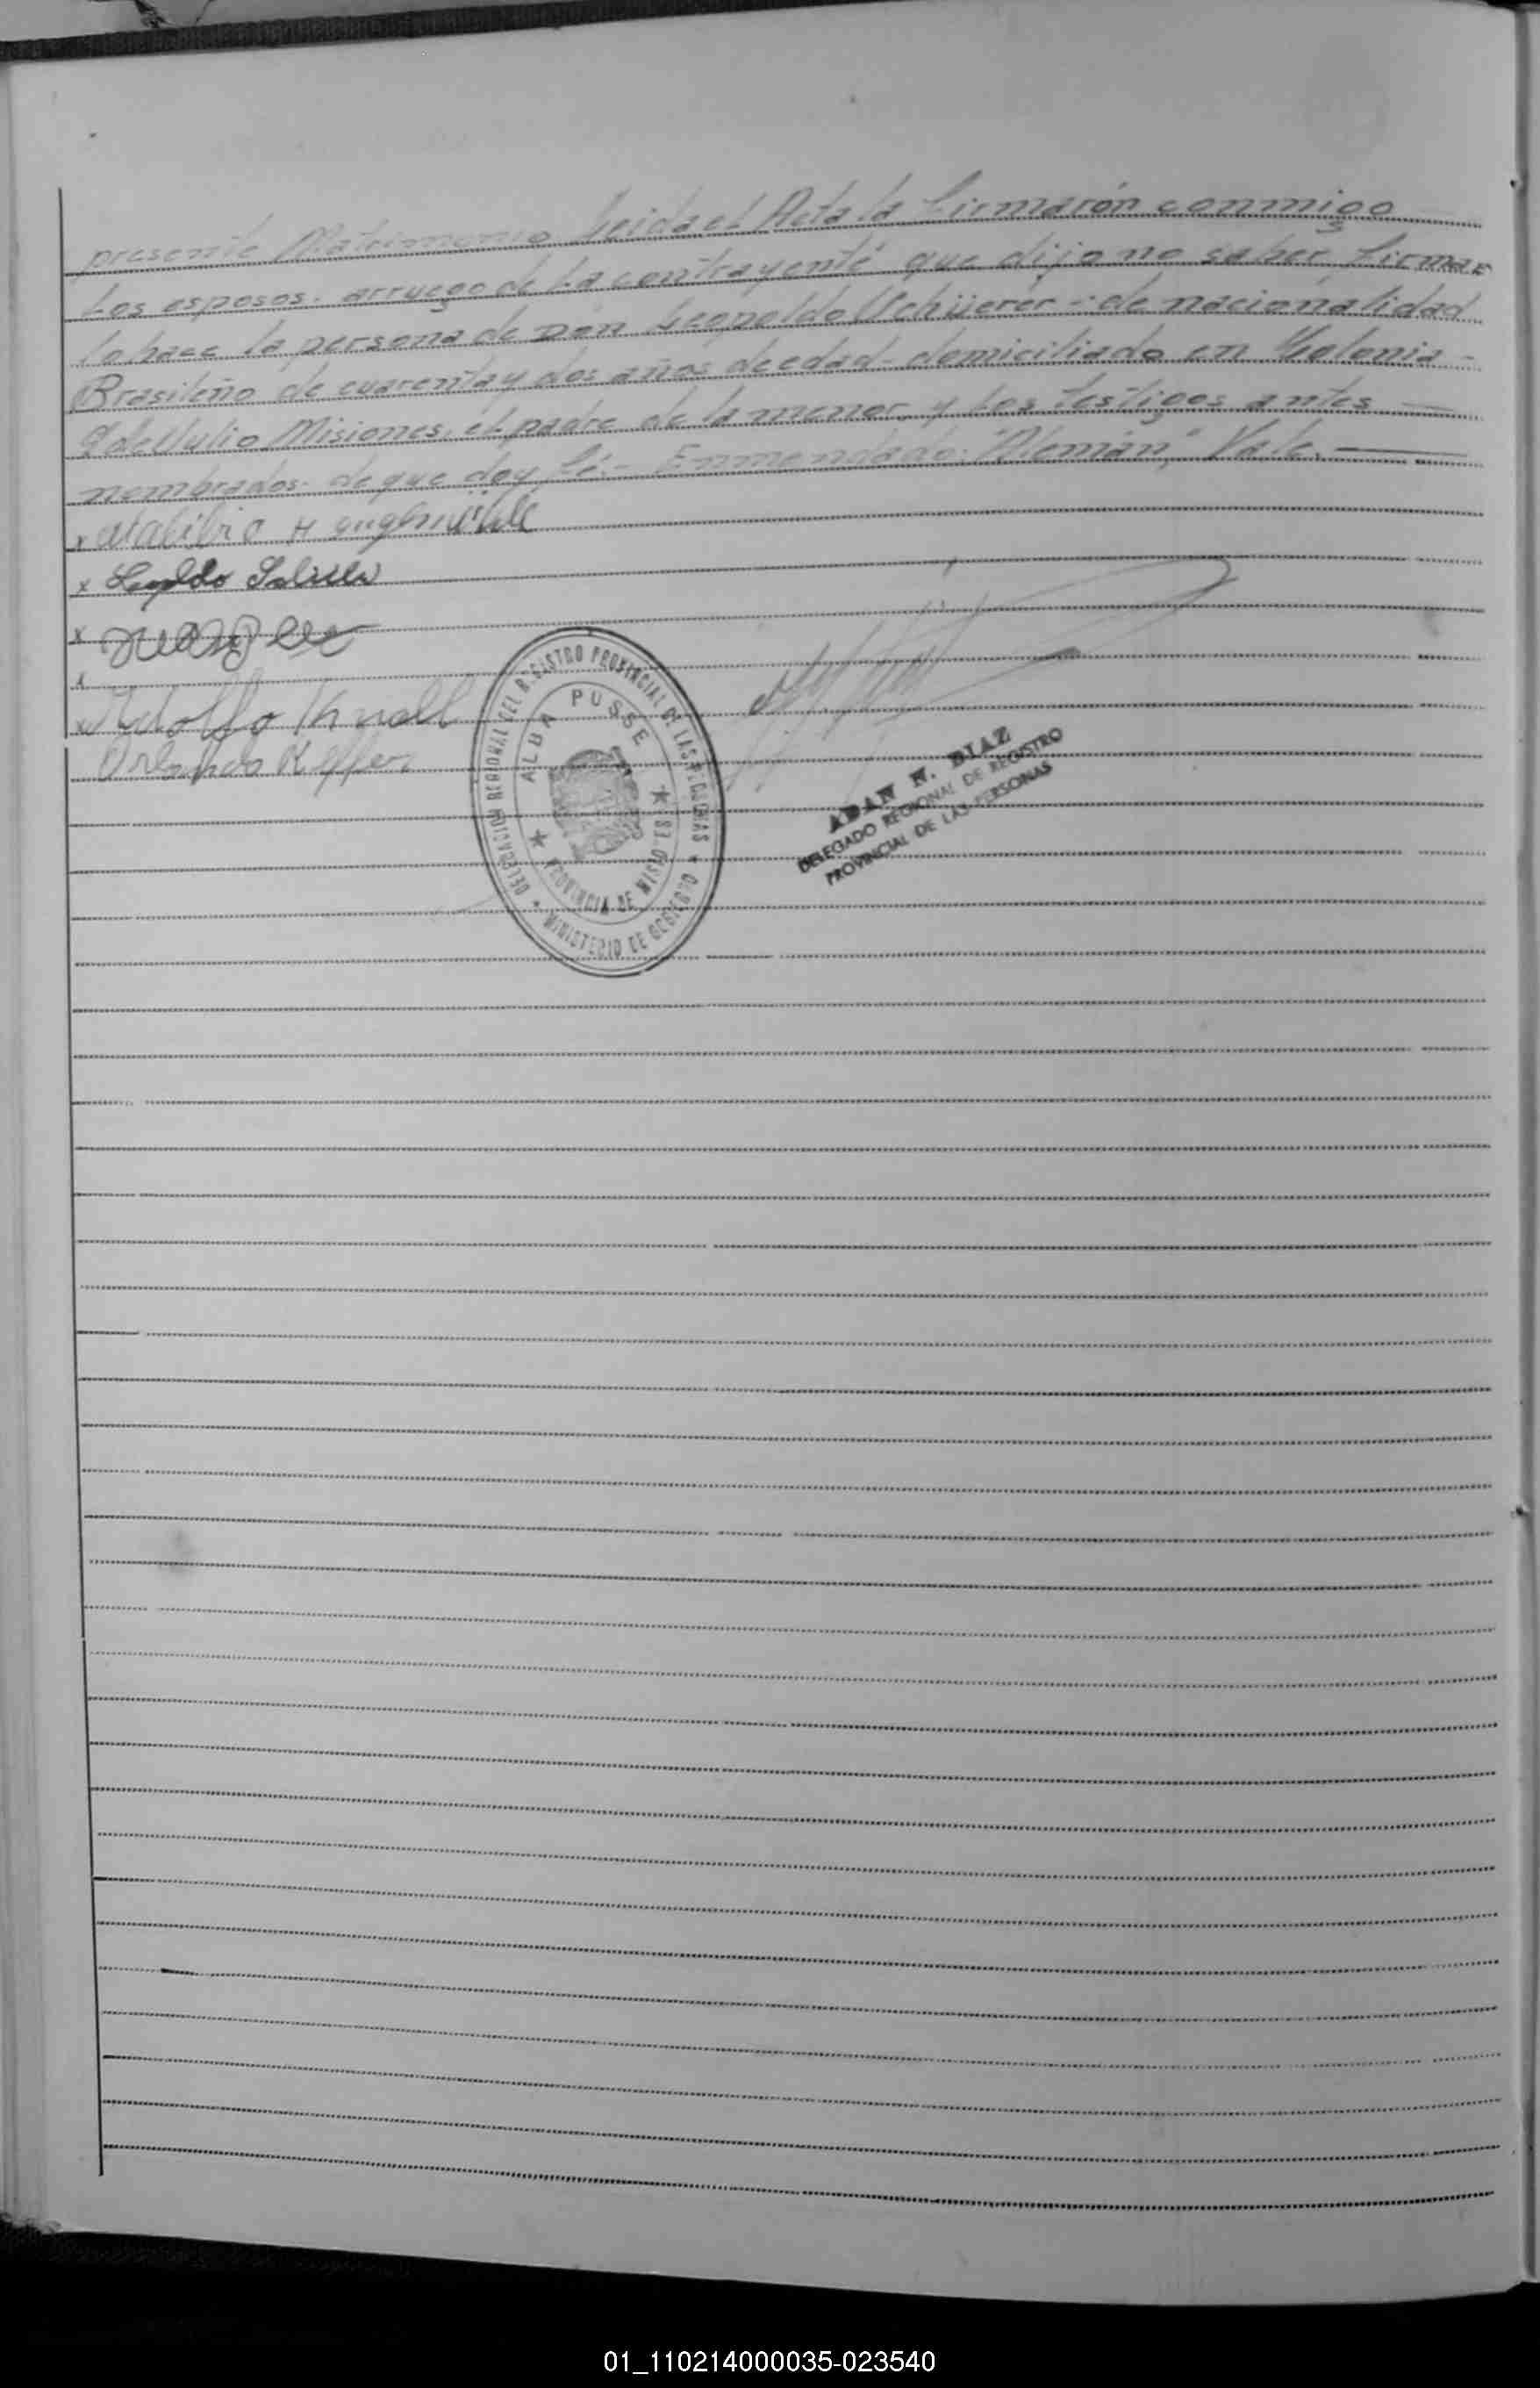 presente Matrimonio Leida el Acta la firmarón conmigo
Los esposos. arruego de La contrayente que dijo no saber firmar
Lo hace la persona de Don Leopoldo Schüerer - de nacionalidad
Brasileño de cuarenta y dos años de edad - domiciliado en Colonia -
9 de Julio Misiones. el padre de la menor, y Los testigos antes
nombrados. de que doy fé.- Enmendado: "Alemán", Vale.
x
x Leopoldo
x
x
x Adolfo Knoll
Orlando Keffer
DELEGACION REGIONAL DEL REGISTRO PROVINCIAL DE LAS PERSONAS
ALBA PUSSE
PROVINCIA DE MISIONES
MINISTERIO DE GOBIERNO
ADAN N. DIAZ
DELEGADO REGIONAL DE REGISTRO
PROVINCIAL DE LAS PERSONAS
01_110214000035-023540